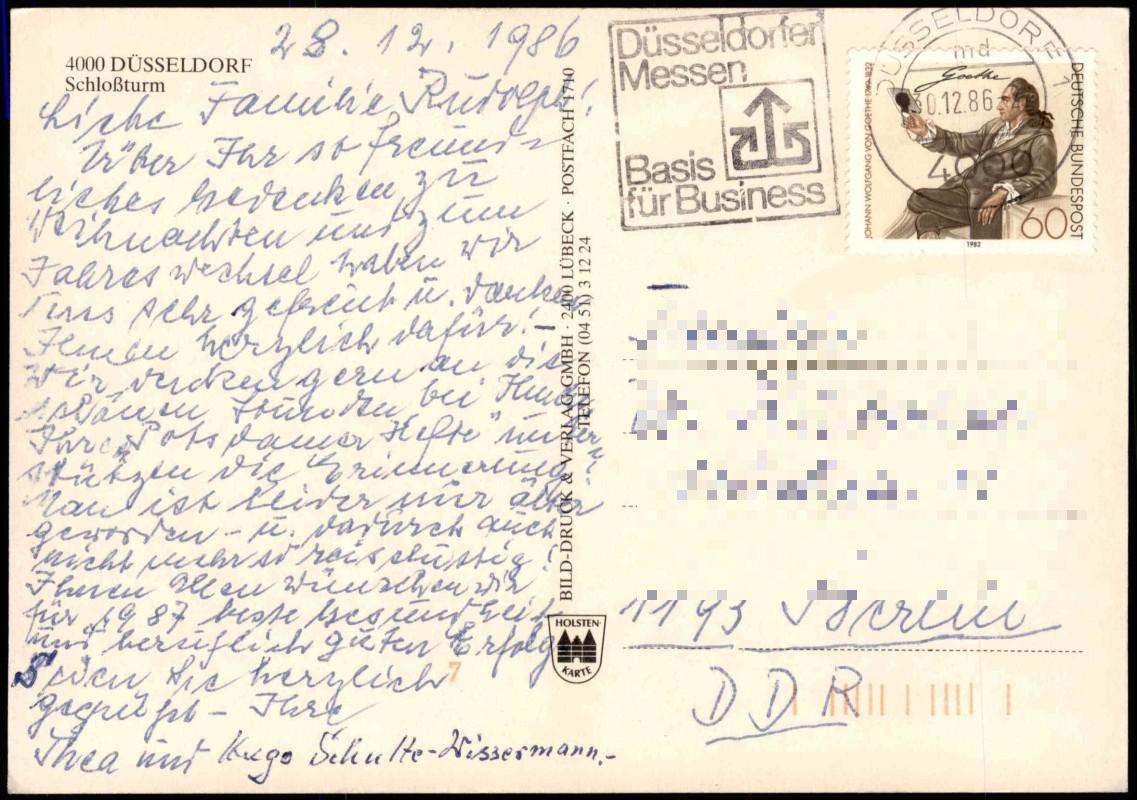 28. 12. 1986
4000 DÜSSELDORF
Schloßturm
Liebe Familie Rudolph!
Über Ihr so freund-
liches Gedenken zu
Weihnachten und zum
Jahreswechsel haben wir
uns sehr gefreut u. danken
Ihnen herzlich dafür! –
Wir denken gern an die
schönen Stunden bei Ihnen
Ihre "Potsdamer Hefte" unter-
stützen die Erinnerung!
Man ist leider nur älter
geworden – u. dadurch auch
nicht mehr so reiselustig!
Ihnen Allen wünschen wir
für 1987 beste Gesundheit
und beruflich guten Erfolg
Seien Sie herzlich
gegrüßt – Ihre
Thea und Hugo Schulte-Wissermann.-
BILD-DRUCK & VERLAG GMBH · 2400 LÜBECK · POSTFACH 1710
TELEFON (04 51) 3 12 24
HOLSTEN-
KARTE
7
Düsseldorfer
Messen
Basis
für Business
DÜSSELDORF 1
md
30.12.86
4000
Goethe
JOHANN WOLFGANG VON GOETHE 1749-1832
DEUTSCHE BUNDESPOST
60
1982
1193 Berlin
DDR